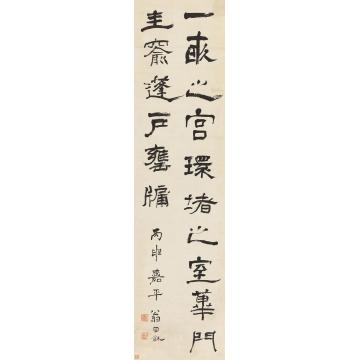 一畝之宮環堵之室蓽門
圭窬蓬戶甕牖
丙申嘉平翁同龢